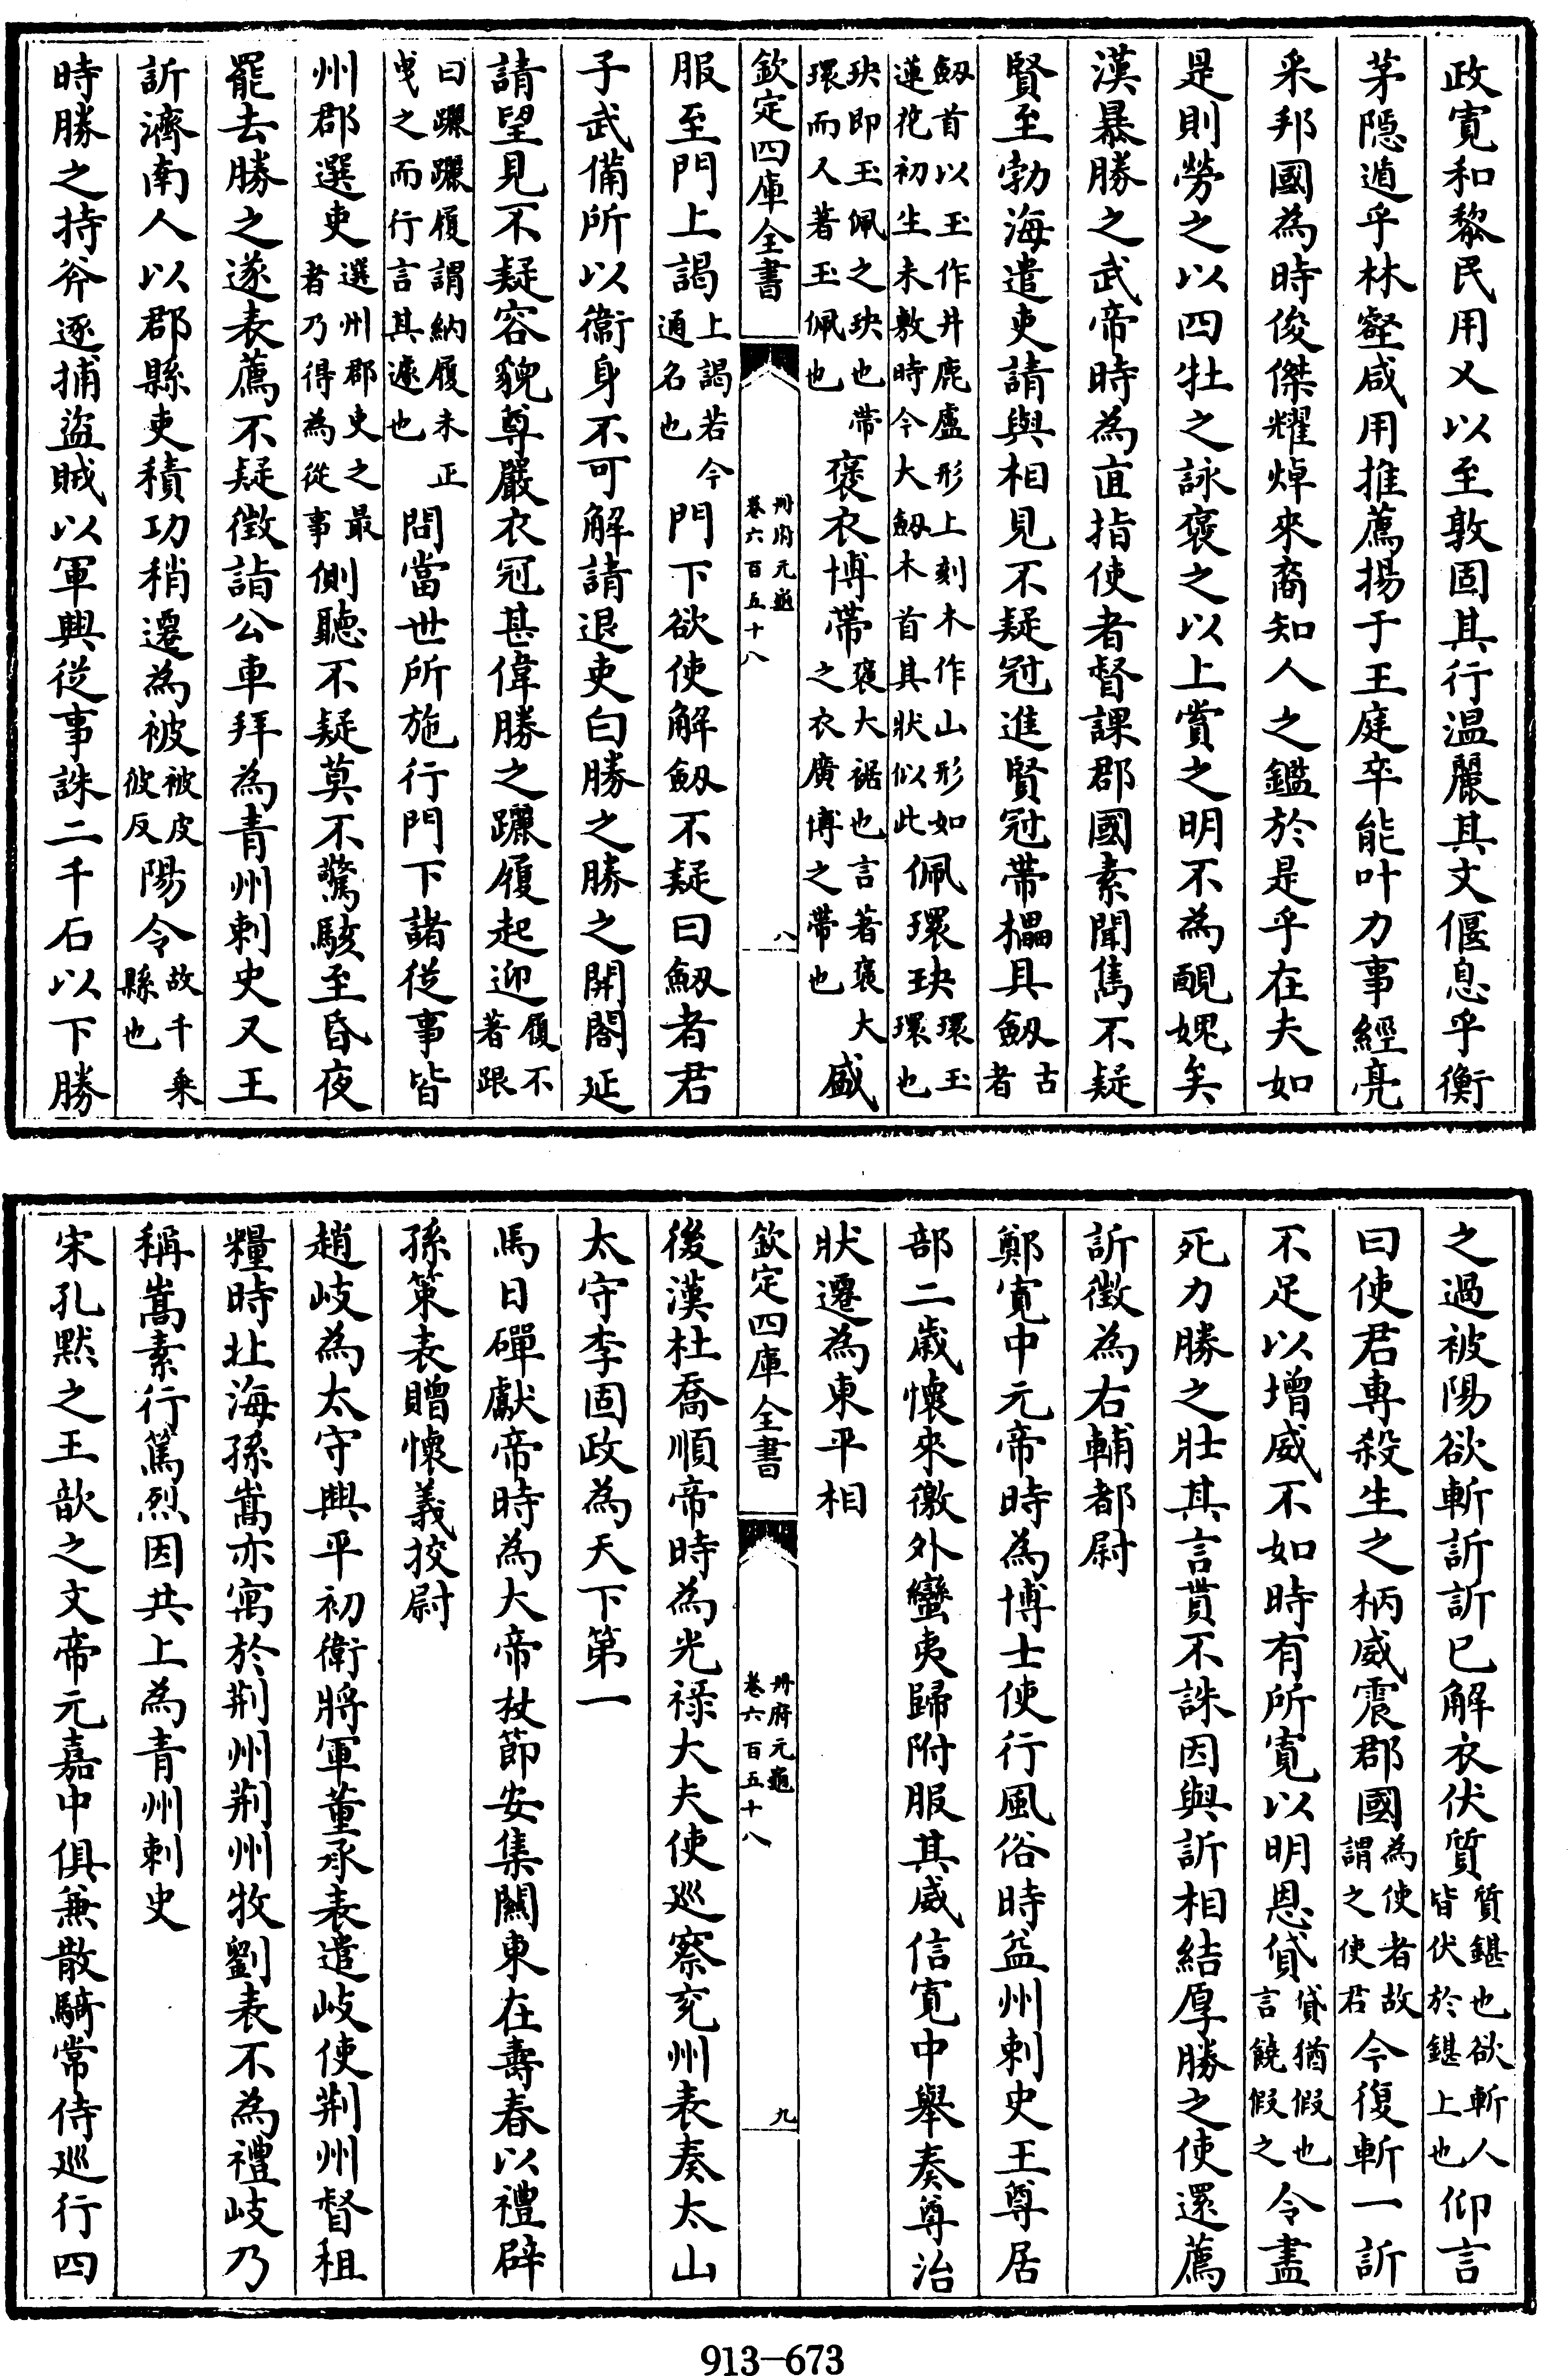 政寛和黎民用乂以至敦固其行温麗其文偃息乎衡
茅隱遁乎林壑咸用推薦揚于王庭卒能叶力事經亮
采邦國為時俊傑耀焯來裔知人之鑑於是乎在夫如
是則勞之以四牡之詠褒之以上賞之明不為靦媿矣
漢暴勝之武帝時為直指使者督課郡國素聞雋不疑
賢至勃海遣吏請與相見不疑冠進賢冠帶櫑具劔古者
劔首以玉作井鹿盧形上刻木作山形如蓮花初生未敷時今大劔木首其狀似此佩環玦環玉環也
玦即玉佩之玦也帶環而人著玉佩也褒衣博帶褒大裾也言著褒大之衣廣博之帶也盛
欽定四庫全書
冊府元龜
卷六百五十八
八
服至門上謁上謁若今通名也門下欲使解劔不疑曰劔者君
子武備所以衞身不可解請退吏白勝之勝之開閤延
請望見不疑容貌尊嚴衣冠甚偉勝之躧履起迎履不著跟
曰躧躧履謂納履未正曵之而行言其遽也問當世所施行門下諸從事皆
州郡選吏選州郡吏之最者乃得為從事側聽不疑莫不驚駭至昏夜
罷去勝之遂表薦不疑徵詣公車拜為青州刺史又王
訢濟南人以郡縣吏積功稍遷為被被皮彼反陽令故千乗縣也
時勝之持斧逐捕盜賊以軍興從事誅二千石以下勝
之過被陽欲斬訢訢已解衣伏質質鍖也欲斬人皆伏於鍖上也仰言
曰使君専殺生之柄威震郡國為使者故謂之使君今復斬一訢
不足以增威不如時有所寛以明恩貸貸猶假也言饒假之令盡
死力勝之壯其言貰不誅因與訢相結厚勝之使還薦
訢徵為右輔都尉
鄭寛中元帝時為博士使行風俗時益州刺史王尊居
部二歲懷來徼外蠻夷歸附服其威信寛中舉奏尊治
狀遷為東平相
欽定四庫全書
冊府元龜
卷六百五十八
九
後漢杜喬順帝時為光禄大夫使巡察兖州表奏太山
太守李固政為天下第一
馬日磾獻帝時為大帝杖節安集關東在壽春以禮辟
孫策表贈懷義挍尉
趙岐為太守興平初衛將軍董承表遣岐使荆州督租
糧時北海孫嵩亦寓於荆州荆州牧劉表不為禮岐乃
稱嵩素行篤烈因共上為青州刺史
宋孔黙之王歆之文帝元嘉中俱兼散騎常侍巡行四
913—673